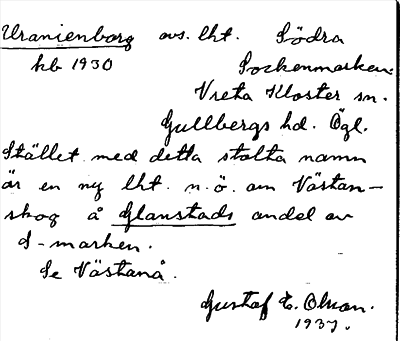 Uranienborg avs. lht. Södra
kb 1930 Sockenmarken:
Vreta Kloster sn.
Gullbergs hd. Ögl.
Stället med detta stolta namn
är en ny lht. n.ö. om Västan-
skog å Glanstads andel av
S-marken.
Se Västanå.
Gustaf E. Olson.
1937.